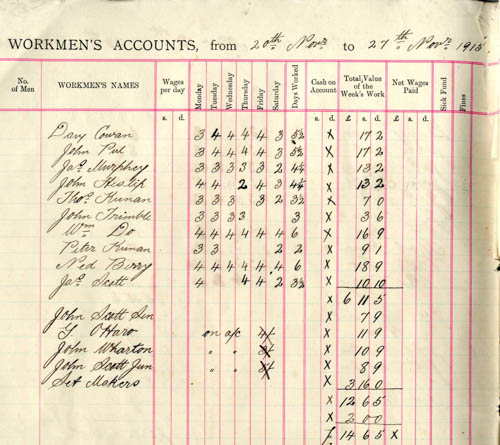 WORKMEN'S ACCOUNTS, from 20th Novr to 27th Novr 1915
No. of Men WORKMEN'S NAMES Wages per day Monday Tuesday Wednesday Thursday Friday Saturday Days Worked Cash on Account Total Value of the Week's Work Net Wages Paid Sick Fund Fines
s. d. s. d. £ s. d. £ s. d.
Davy Cowan 3 4 4 4 4 3 x 17 2
John 3 4 4 4 4 3 x 17 2
Jas Murphy 3 3 3 3 3 2 4¼ x 13 2
John 4 4 2 4 3 4¼ x 13 2
Thos Kunan 3 3 3 3 2 3½ x 7 0
John Trimble 3 3 3 3 3 x 3 6
Wm Do 4 4 4 4 4 4 6 x 16 9
Peter Kunan 3 3 2 2 x 9 1
Ned Berry 4 4 4 4 4 4 6 x 18 9
Jas Scott 4 4 4 2 3½ x 10 10
x 6 11 5
John Scott Sen x 7 9
G. O'Hare on a/c 4/- x 11 9
John Wharton " " x 10 9
John Scott Jun " " x 8 9
Set Makers x 3 16 0
x 12 6 5
x 2 0 0
14 6 5 x